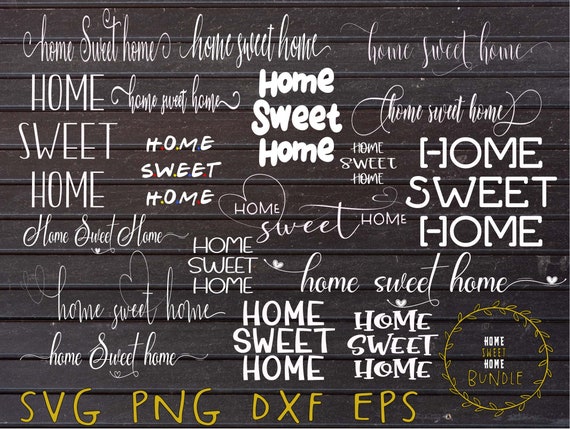 home Sweet home
home sweet home
home sweet home
HOME
SWEET
HOME
home sweet home
Home
Sweet
Home
home sweet home
H.O.M.E
S.W.E.E.T
H.O.M.E
HOME
SWEET
HOME
HOME
SWEET
HOME
HOME sweet HOME
Home Sweet Home
HOME
SWEET
HOME
home sweet home
home sweet home
home Sweet home
HOME
SWEET
HOME
HOME
SWEET
HOME
HOME
SWEET
HOME
BUNDLE
SVG PNG DXF EPS